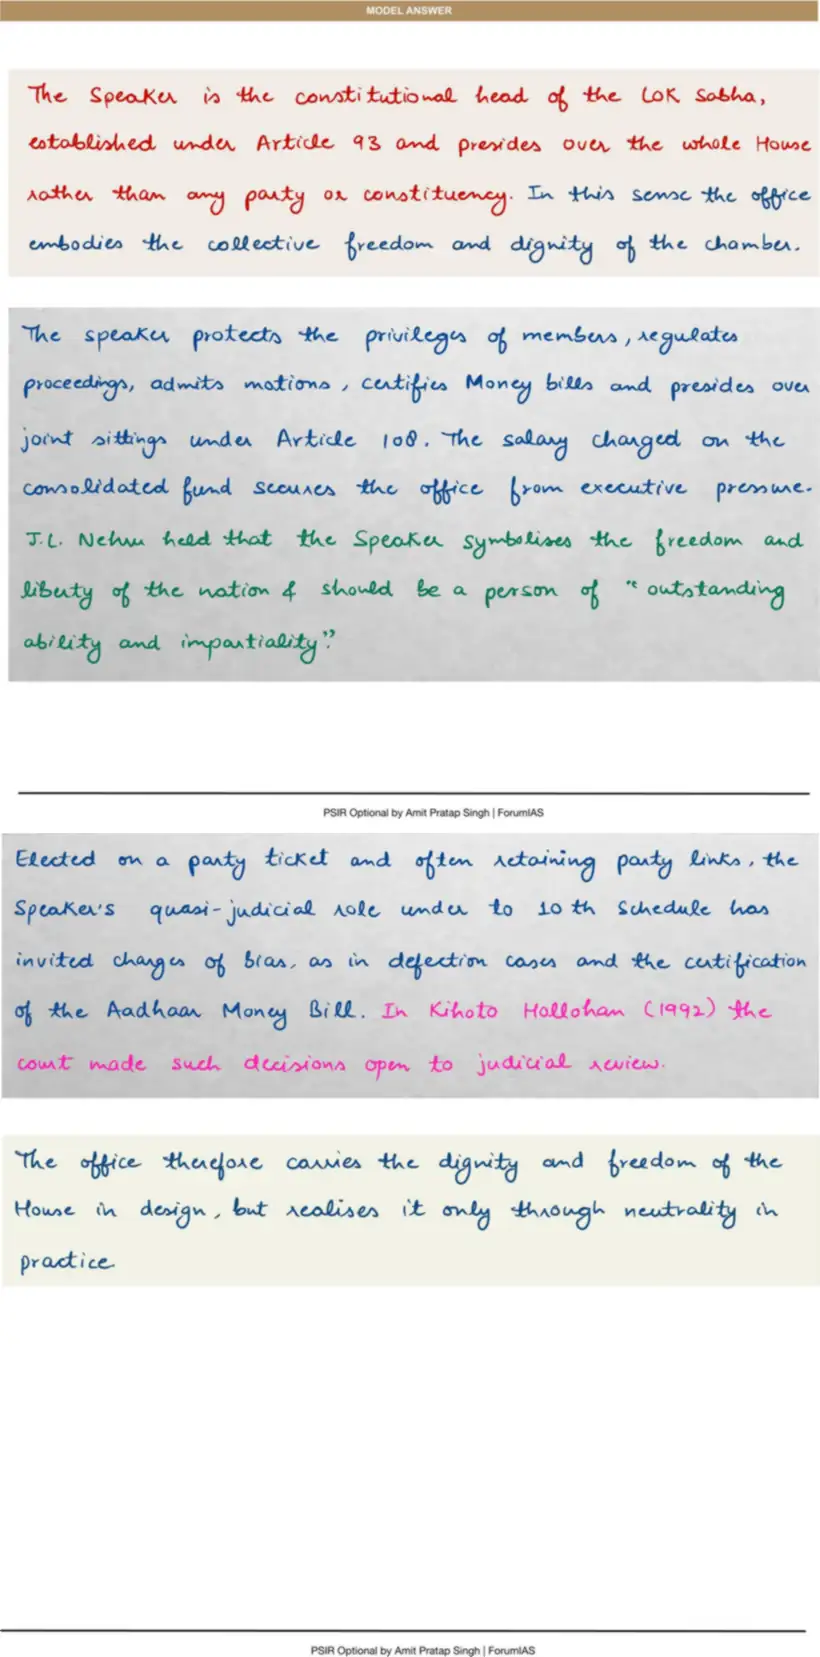 MODEL ANSWER
The Speaker is the constitutional head of the Lok Sabha,
established under Article 93 and presides over the whole House
rather than any party or constituency. In this sense the office
embodies the collective freedom and dignity of the chamber.
The speaker protects the privileges of members, regulates
proceedings, admits motions, certifies Money bills and presides over
joint sittings under Article 108. The salary charged on the
consolidated fund secures the office from executive pressure.
J.L. Nehru held that the Speaker symbolises the freedom and
liberty of the nation & should be a person of "outstanding
ability and impartiality".
PSIR Optional by Amit Pratap Singh | ForumIAS
Elected on a party ticket and often retaining party links, the
Speaker's quasi-judicial role under to 10th Schedule has
invited charges of bias, as in defection cases and the certification
of the Aadhaar Money Bill. In Kihoto Hollohan (1992) the
court made such decisions open to judicial review.
The office therefore carries the dignity and freedom of the
House in design, but realises it only through neutrality in
practice
PSIR Optional by Amit Pratap Singh | ForumIAS